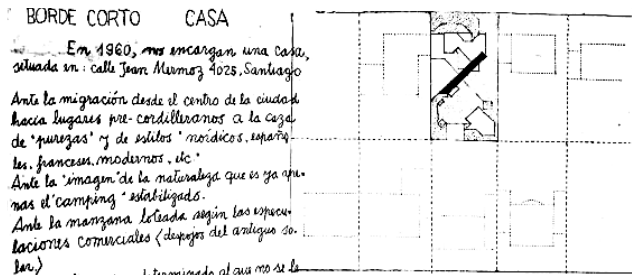 BORDE CORTO CASA
En 1960, nos encargan una casa,
situada en: calle Jean Mermoz 4025, Santiago
Ante la migración desde el centro de la ciudad
hacia lugares pre-cordilleranos a la caza
de "purezas" y de estilos "nórdicos, españo-
les, franceses, modernos, etc"
Ante la "imagen" de la naturaleza que es ya ape-
nas el "camping" estabilizado.
Ante la manzana loteada según las especu-
laciones comerciales (despojos del antiguo so-
lar,)
determinado al que no se le